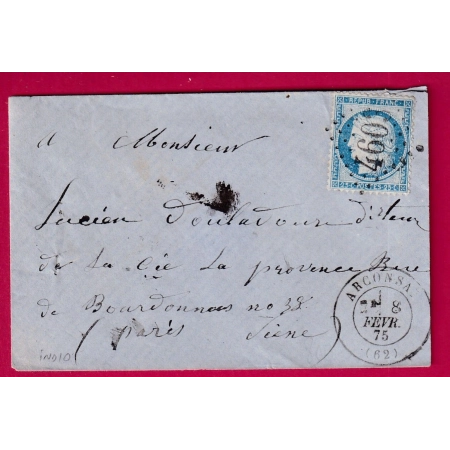 REPUB. FRANC.
460
25 C. POSTES 25 C.
a Monsieur
Lucien
de La Cie La provence Rue
de Bourdonnais no 38
Paris Seine
ARCONSA
8
FEVR.
75
(62)